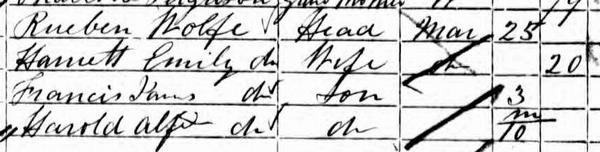 Rueben Wolfe Head Mar 25
Harriett Emily do Wife do 20
Francis do Son 3
Harold Alf do do m/10